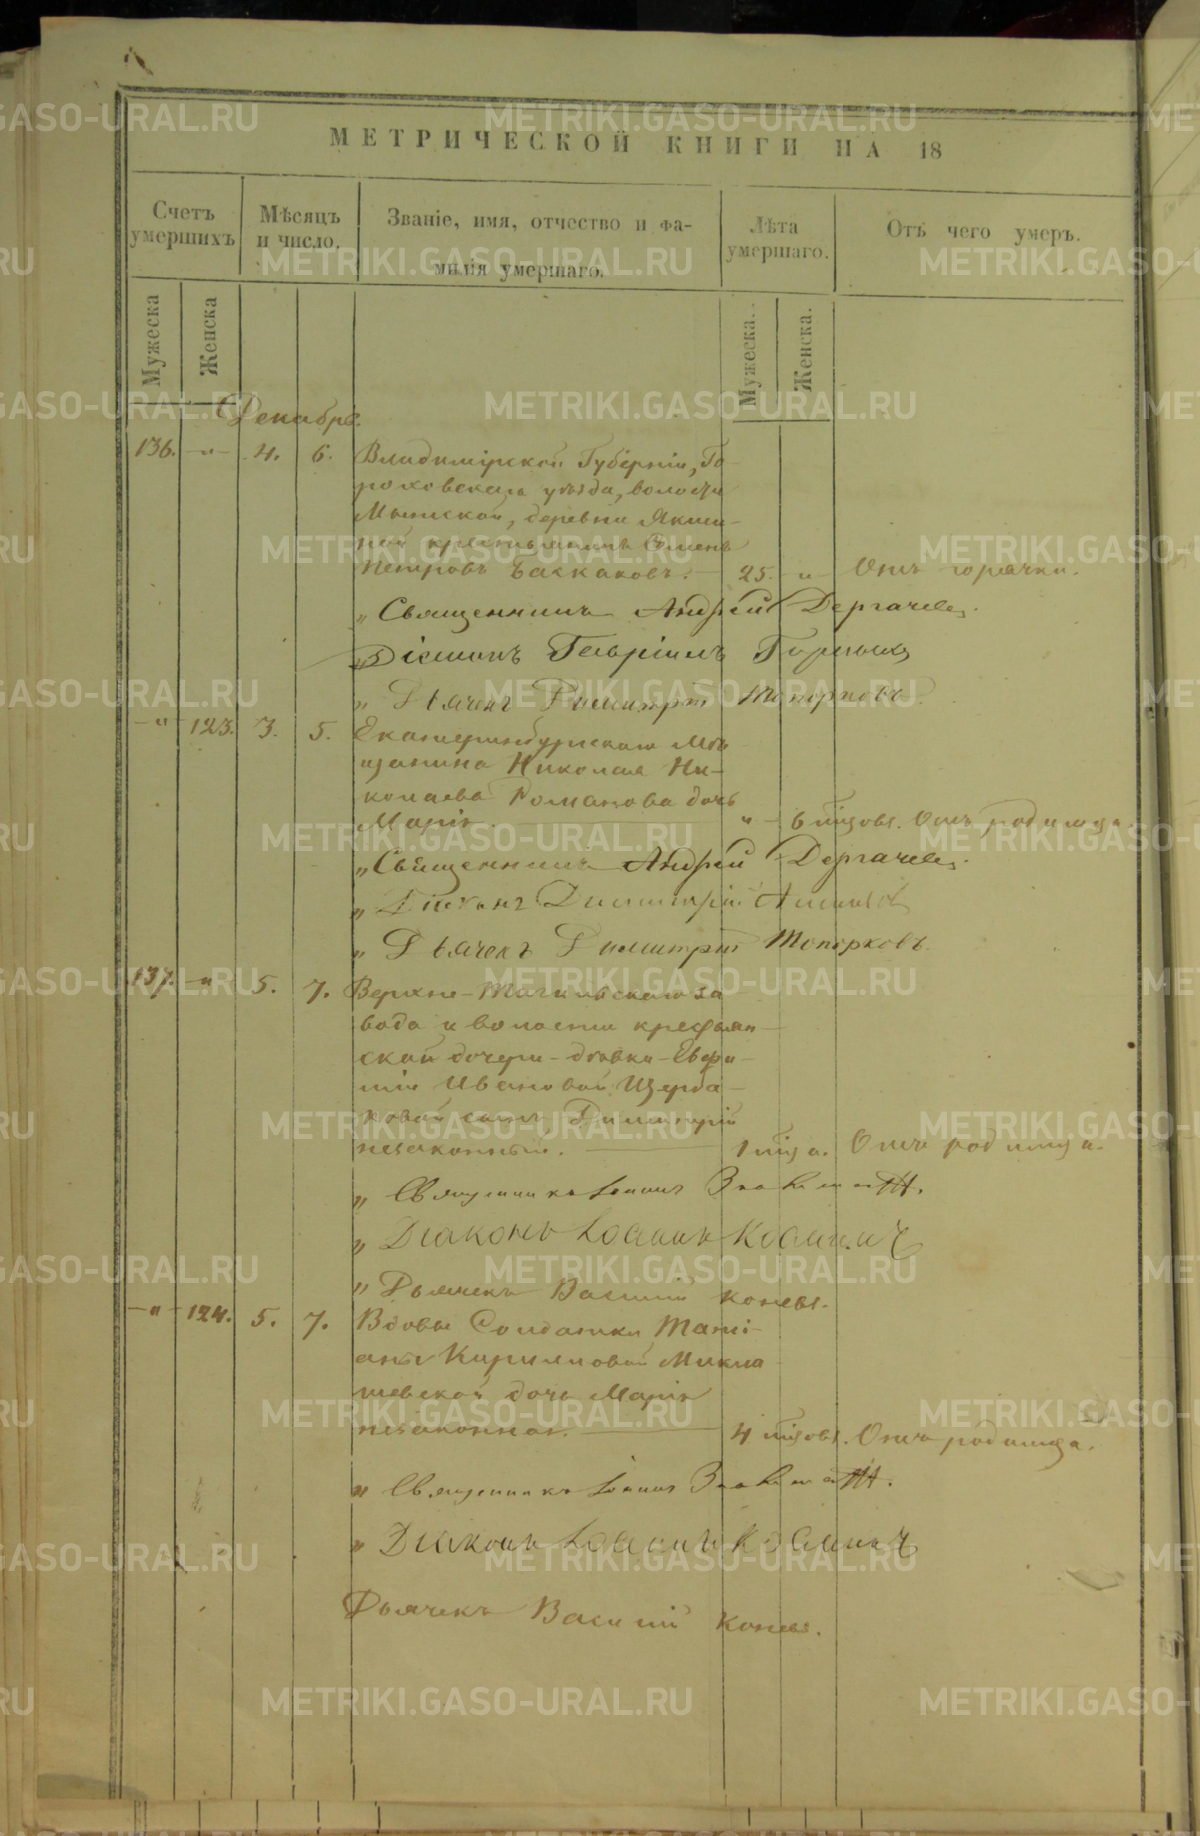 МЕТРИЧЕСКОЙ КНИГИ НА 18
Счетъ умершихъ.
Мѣсяцъ и число.
Званіе, имя, отчество и фамилія умершаго.
Лѣта умершаго.
Отъ чего умеръ.
Мужеска
Женска
Мужеска.
Женска.
Декабрь.
136. -"- 4. 6. Владимірской Губерніи, Го-
роховскаго уѣзда, волости
деревни Якши-
ной крестьянинъ Семенъ
Петровъ Баскаковъ. 25. -"- Отъ горячки.
„Священникъ Андрей Дергачевъ.
„Діаконъ Гавріилъ
„Дьячекъ Димитрій Топорковъ.
-"- 123. 3. 5. Екатеринбургскаго Мѣ-
щанина Николая Ни-
колаева Романова дочь
Марія. " 6 мцовъ. Отъ родимца.
„Священникъ Андрей Дергачевъ.
„Діаконъ Димитрій
„Дьячекъ Димитрій Топорковъ.
137. -"- 5. 7. Верхне-Тагильскаго за-
вода и волости крестьян-
ской дочери-дѣвки-Евфи-
міи Ивановой Щерба-
ковой сынъ, Димитрій
незаконный. 1 мца. Отъ родимца.
„Священникъ Іоаннъ
„Діаконъ Іоаннъ
„Дьячекъ Василій Коневъ.
-"- 124. 5. 7. Вдовы Солдатки Тати-
аны Кирилловой Микла-
шевской дочь Марія
незаконная. 4 мцовъ. Отъ родимца.
„Священникъ Іоаннъ
„Діаконъ Іоаннъ
Дьячекъ Василій Коневъ.
METRIKI.GASO-URAL.RU